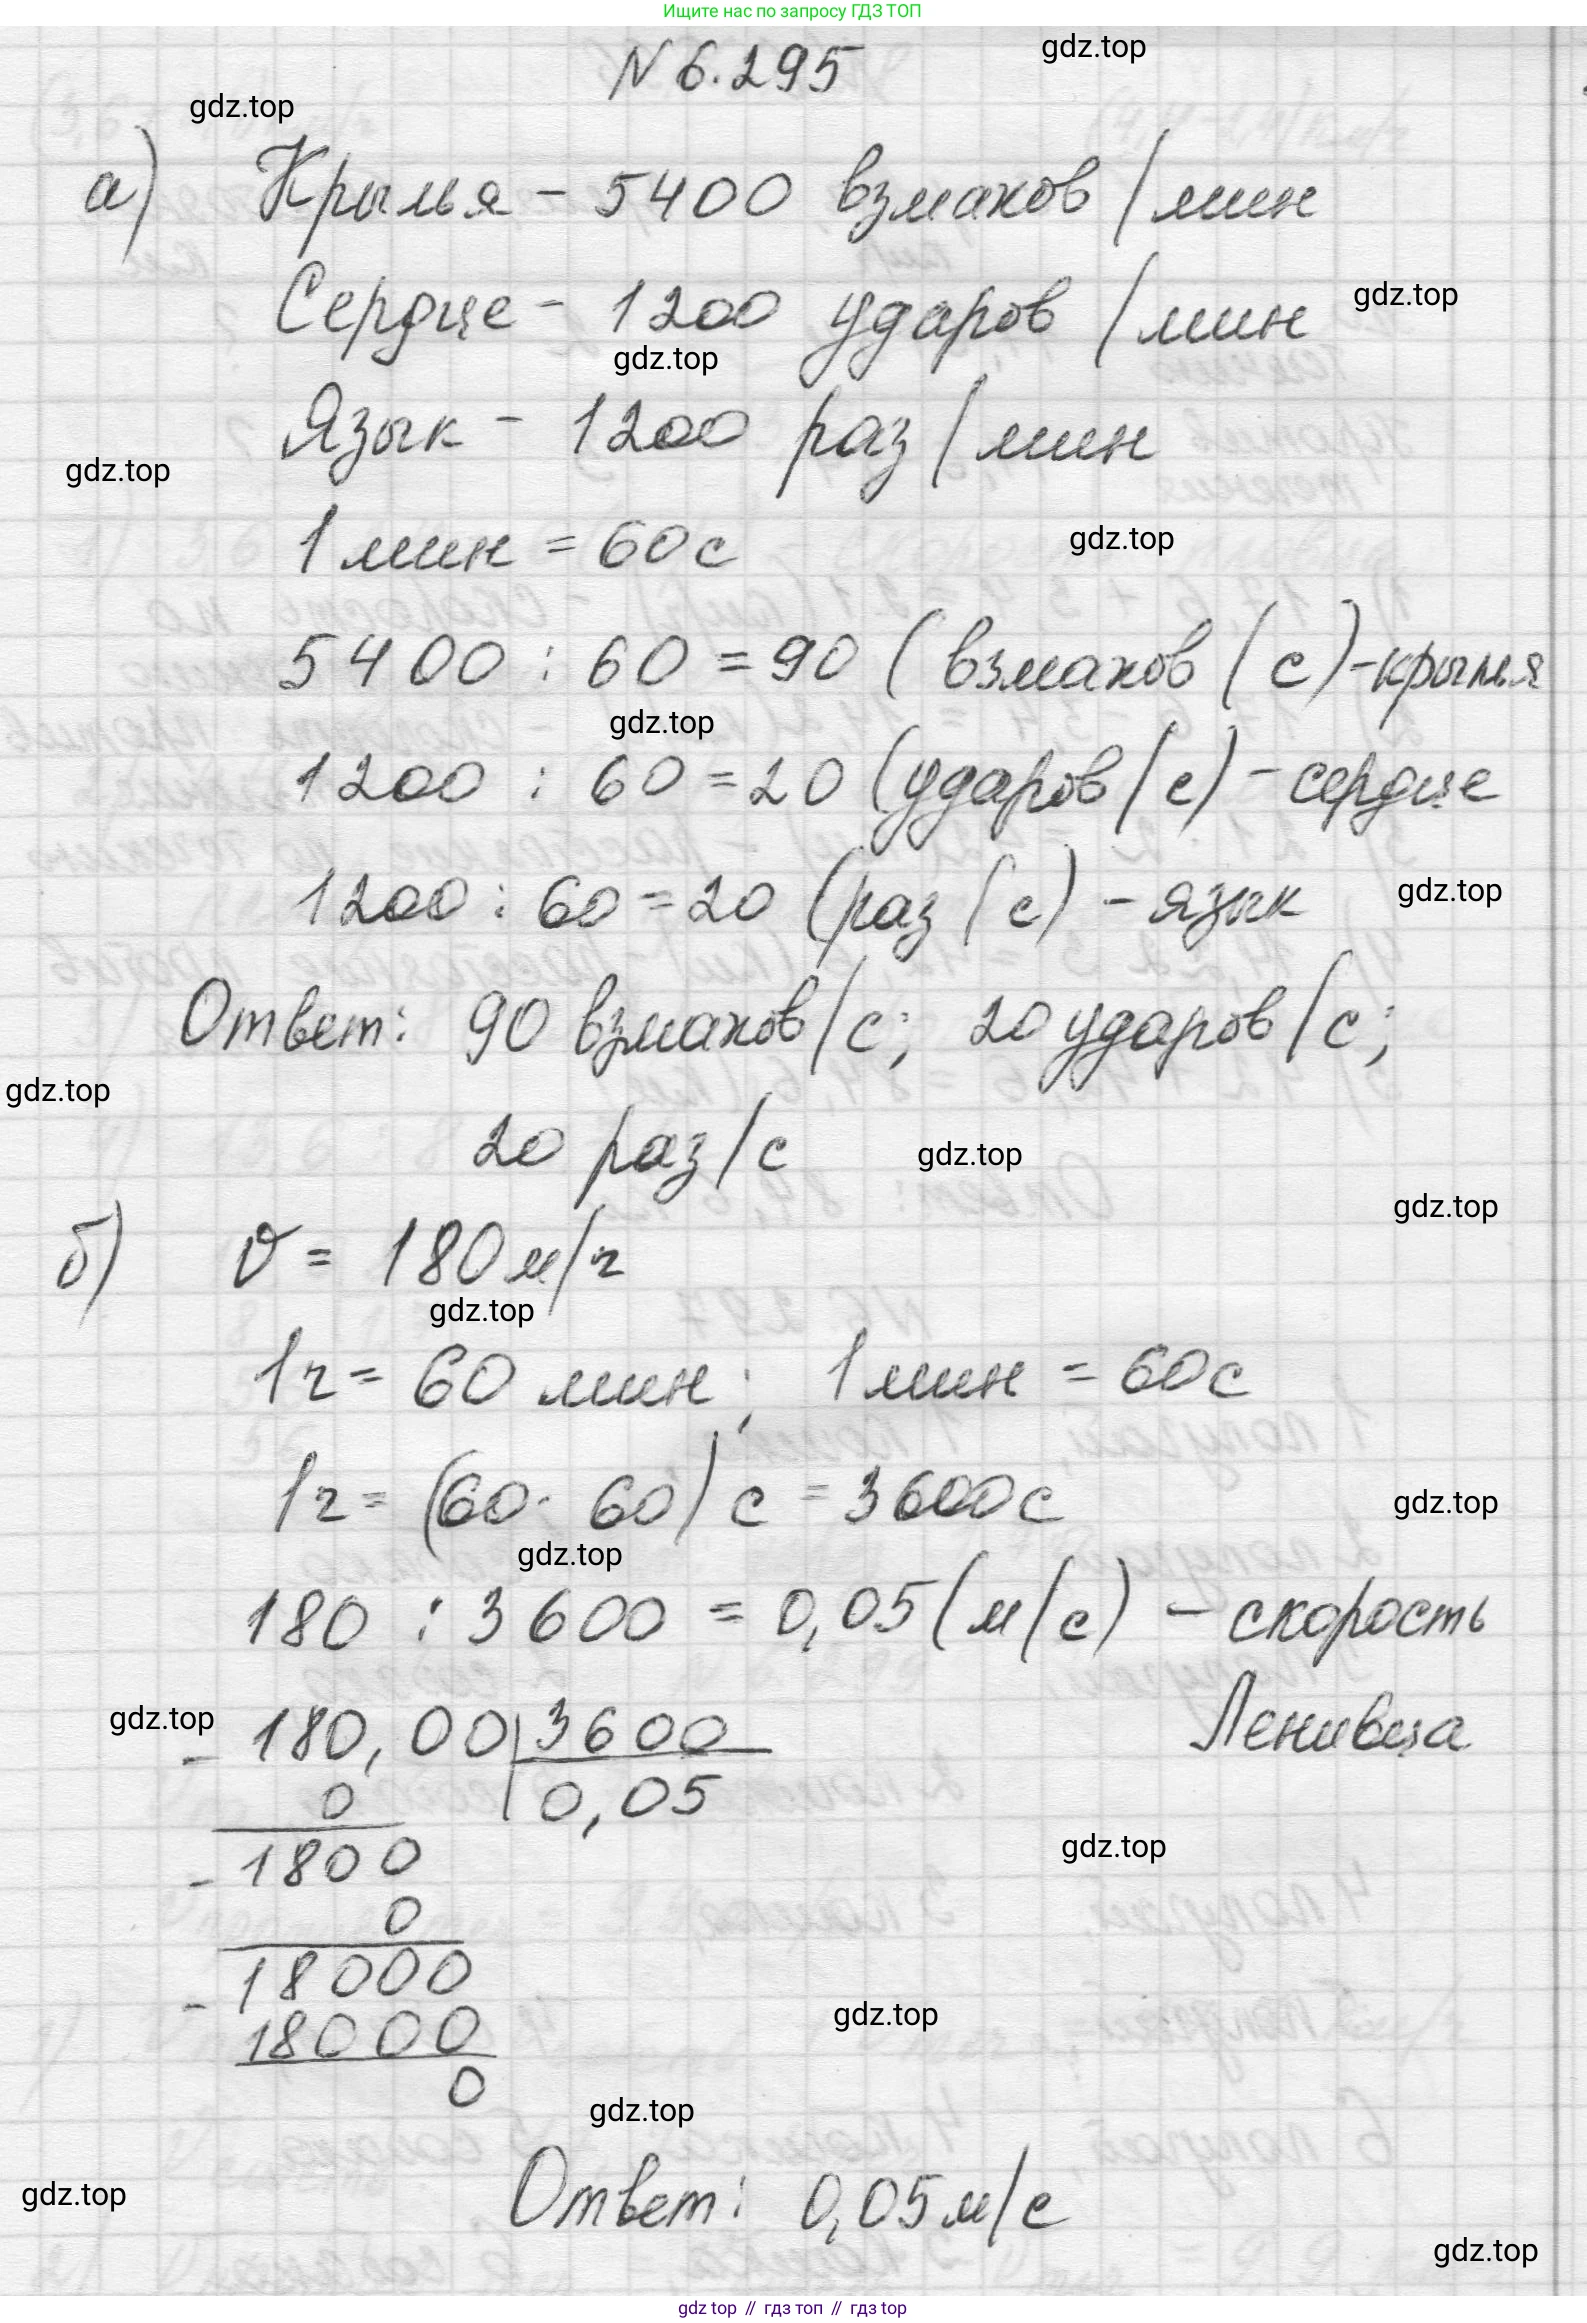 Ищите нас по запросу ГДЗ ТОП
N 6.295
gdz.top
gdz.top
а) Крылья - 5400 взмахов / мин
Сердце - 1200 ударов / мин
gdz.top
gdz.top
Язык - 1200 раз / мин
gdz.top
1 мин = 60 с
gdz.top
5400 : 60 = 90 (взмахов / с) - крылья
gdz.top
1200 : 60 = 20 (ударов / с) - сердце
1200 : 60 = 20 (раз / с) - язык
gdz.top
Ответ: 90 взмахов / с; 20 ударов / с;
gdz.top
20 раз / с
gdz.top
gdz.top
б) v = 180 м/ч
gdz.top
1ч = 60 мин; 1 мин = 60с
1ч = (60 · 60) с = 3600с
gdz.top
gdz.top
180 : 3600 = 0,05 (м/с) - скорость
Ленивца
gdz.top
- 180,00 | 3600
0 | 0,05
- 1800
gdz.top
0
- 18000
gdz.top
18000
0
gdz.top
Ответ: 0,05 м/с
gdz.top
gdz.top
gdz top // гдз топ // gdz top